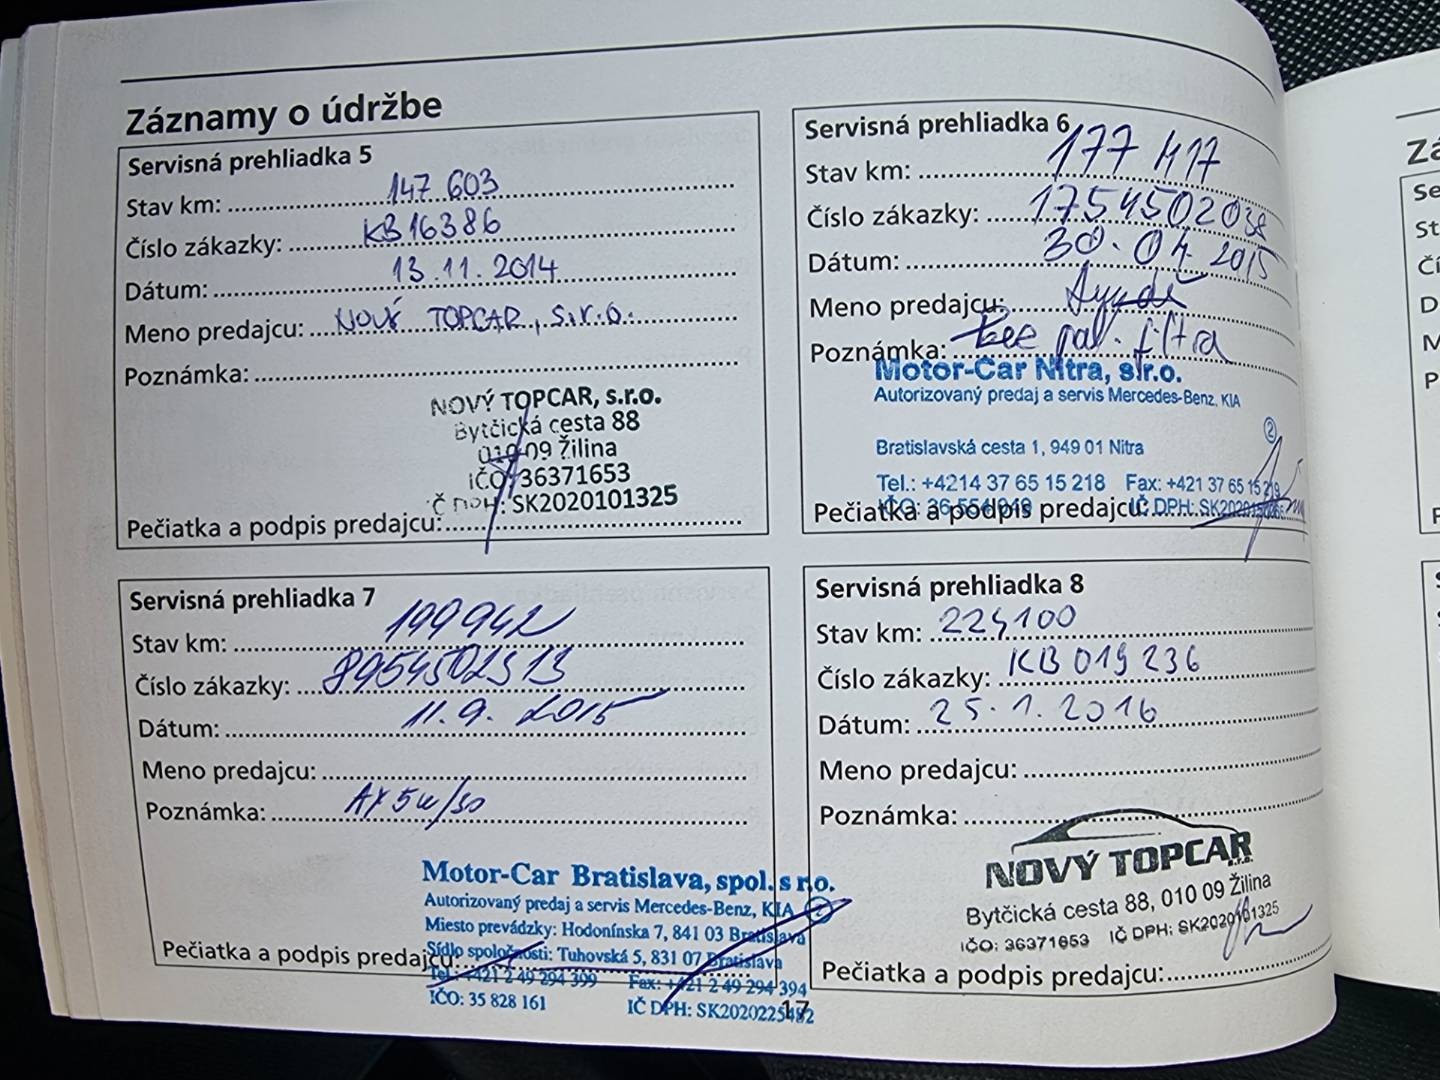 Záznamy o údržbe
Servisná prehliadka 5
Stav km: 147 603
Číslo zákazky: KB16386
Dátum: 13.11.2014
Meno predajcu: NOVÝ TOPCAR, s.r.o.
Poznámka:
NOVÝ TOPCAR, s.r.o.
Bytčická cesta 88
010 09 Žilina
IČO: 36371653
IČ DPH: SK2020101325
Pečiatka a podpis predajcu:
Servisná prehliadka 6
Stav km: 177 417
Číslo zákazky: 1754502038
Dátum: 30.04.2015
Meno predajcu:
Poznámka: bez pal. filtra
Motor-Car Nitra, s.r.o.
Autorizovaný predaj a servis Mercedes-Benz, KIA
2
Bratislavská cesta 1, 949 01 Nitra
Tel.: +4214 37 65 15 218 Fax: +421 37 65 15 219
IČO: IČ DPH:
Pečiatka a podpis predajcu:
Servisná prehliadka 7
Stav km: 199942
Číslo zákazky: 8954502513
Dátum: 11.9. 2015
Meno predajcu:
Poznámka: 5w/30
Motor-Car Bratislava, spol. s r.o.
Autorizovaný predaj a servis Mercedes-Benz, KIA 2
Miesto prevádzky: Hodonínska 7, 841 03 Bratislava
Sídlo spoločnosti: Tuhovská 5, 831 07 Bratislava
Tel.: +421 2 49 294 399 Fax: +421 2 49 294 394
IČO: 35 828 161 IČ DPH: SK2020225482
Pečiatka a podpis predajcu:
Servisná prehliadka 8
Stav km: 224100
Číslo zákazky: KB019236
Dátum: 25.1.2016
Meno predajcu:
Poznámka:
NOVÝ TOPCAR s.r.o.
Bytčická cesta 88, 010 09 Žilina
IČO: 36371653 IČ DPH: SK2020101325
Pečiatka a podpis predajcu:
17
Zá
Se
St
Čí
D
M
P